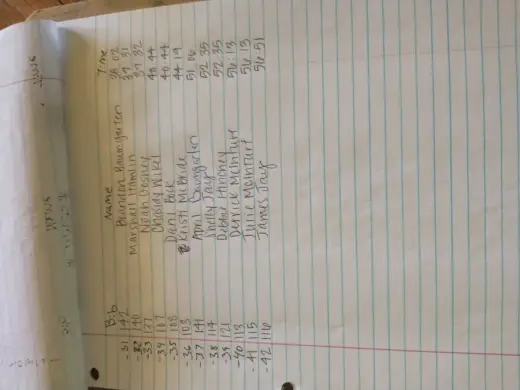 Bib Name Time
-31 142 Brandon Baumgarten 38 02
-32 140 Marshall Hamlin 39 31
-33 127 Noah Goshey 39 32
-34 107 40 44
-35 108 Dani 40:44
-36 103 Kristi McBride 44 19
-37 141 April Baumgarten 51 06
-38 114 Shelly Jay 52 35
-39 121 Debbie 52 35
-40 113 Derrick McInturf 56:13
-41 115 Julie McInturf 56 13
-42 116 James Jay 56 51